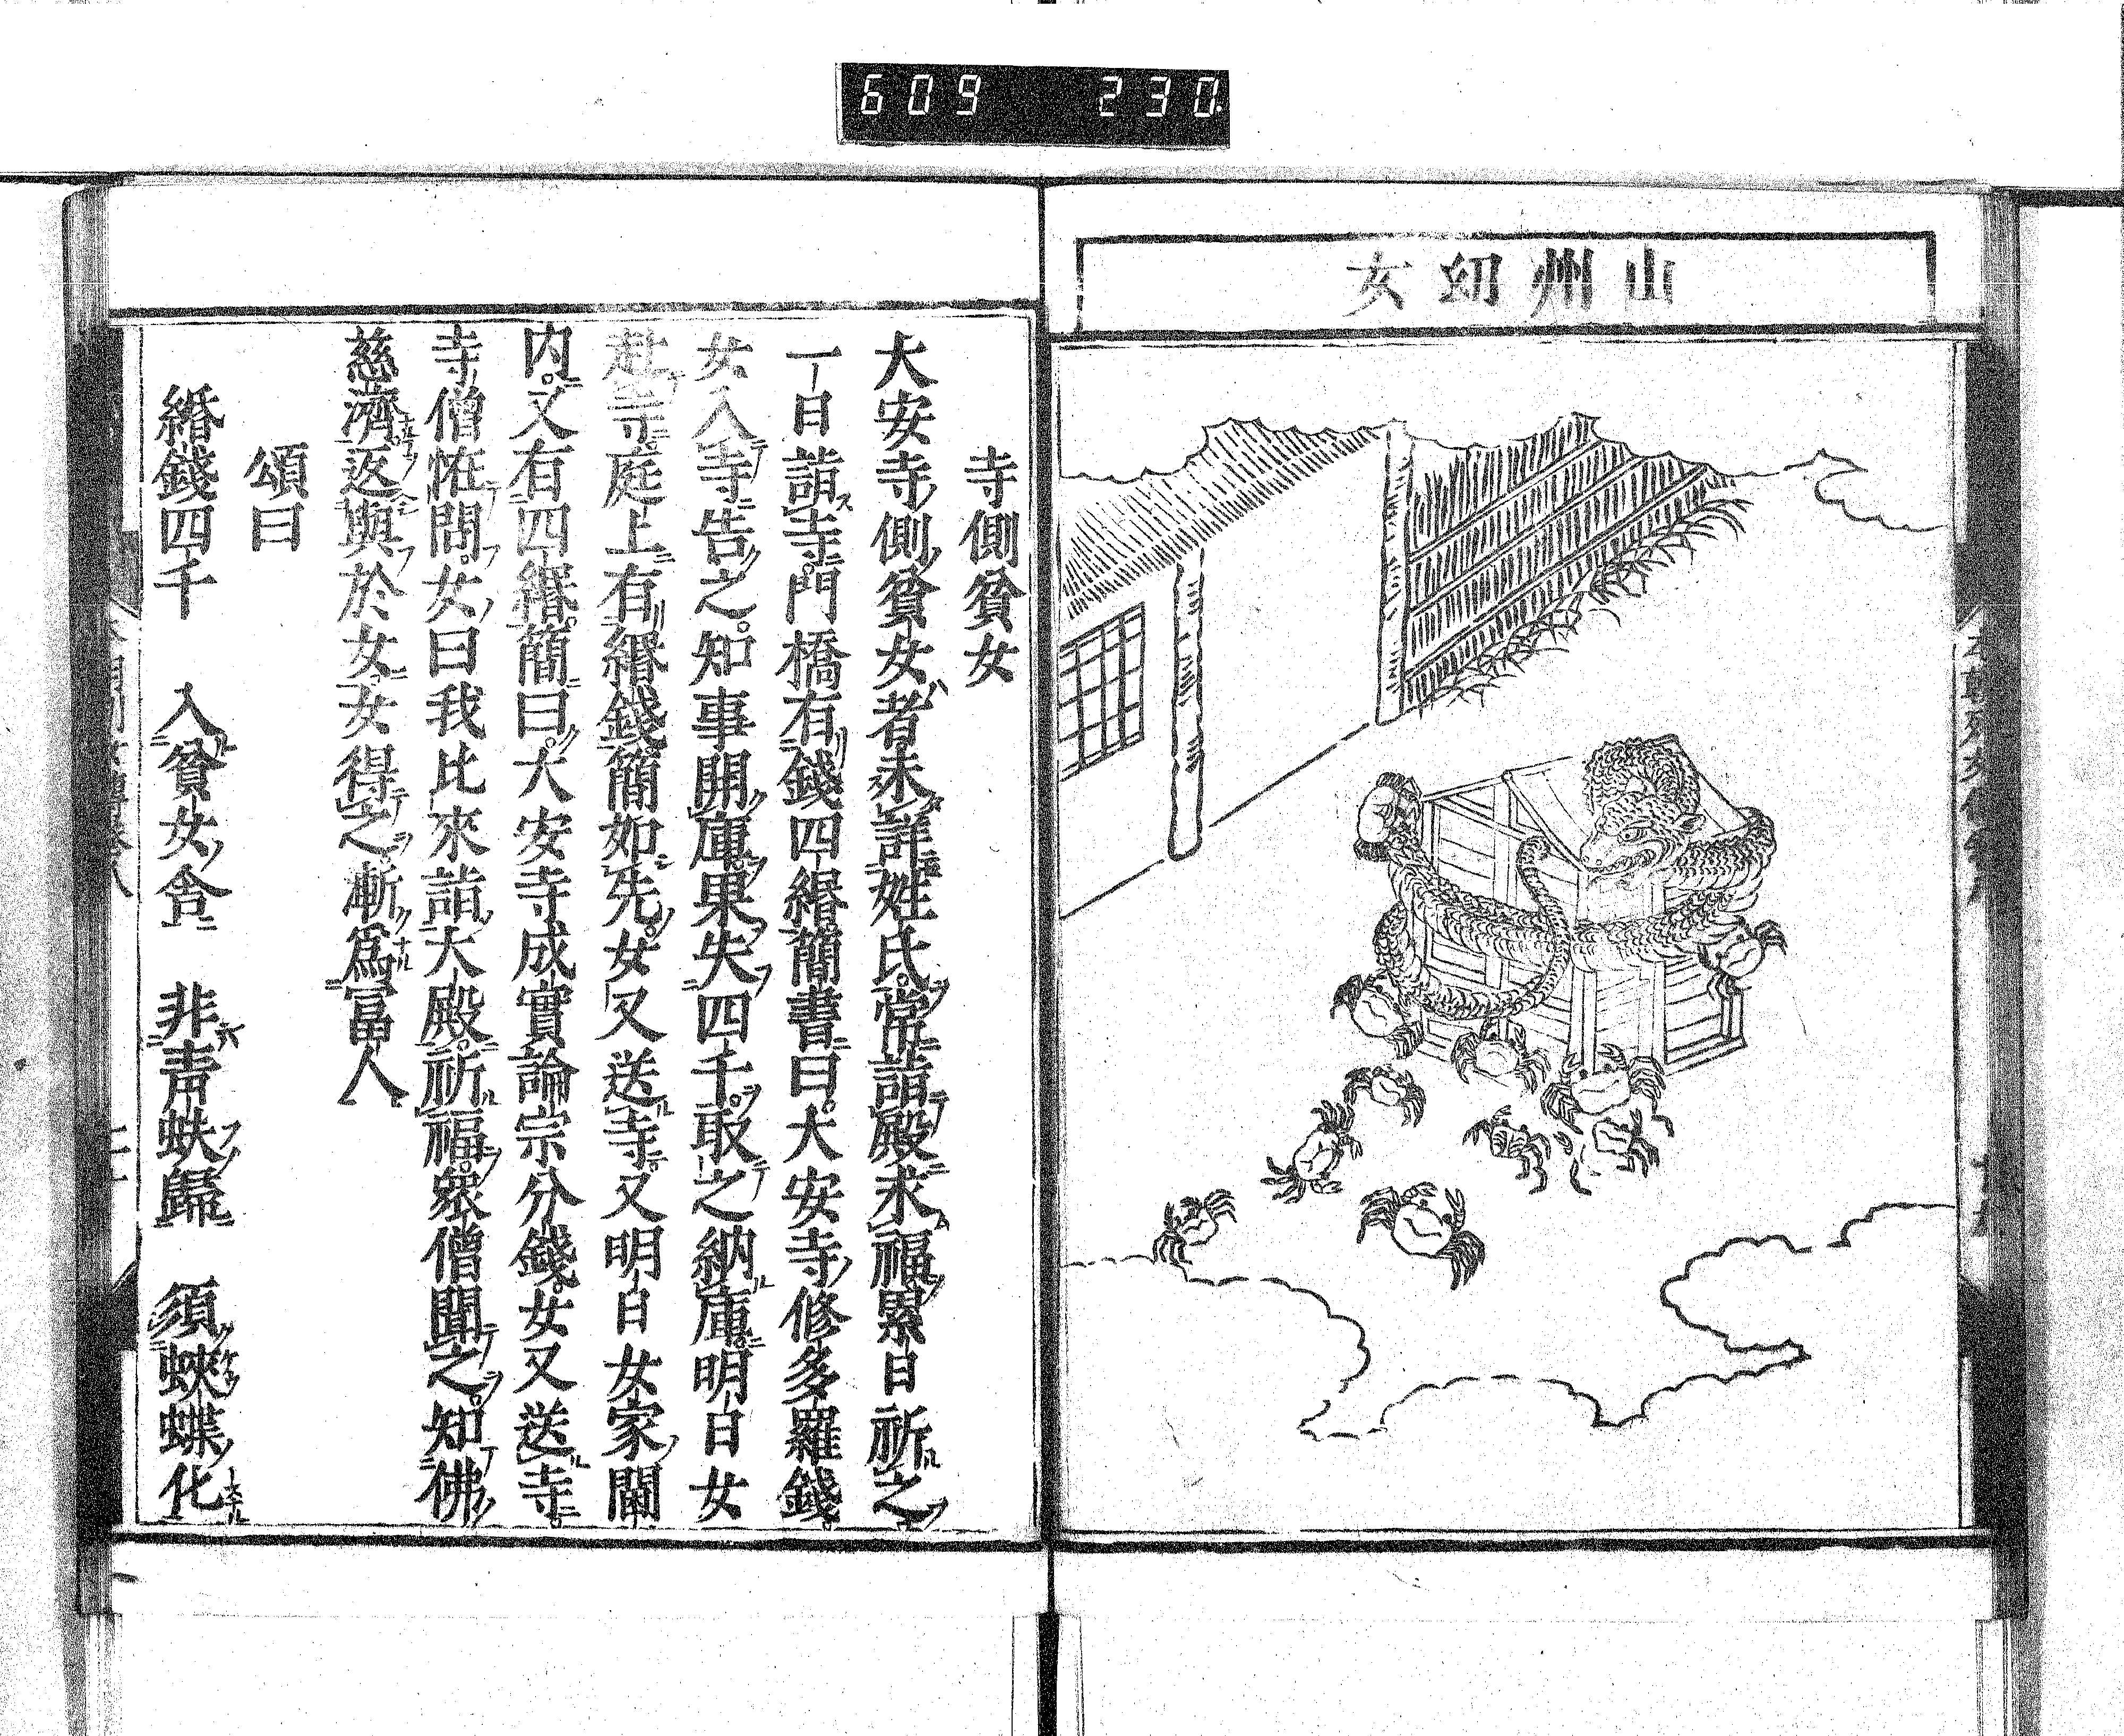 609 230
山州幼女
寺側貧女
大安寺側貧女者未詳姓氏常詣殿求福累日祈之
一日詣寺門橋有錢四緡簡書曰大安寺修多羅錢
女入寺告之知事開庫果失四千取之納庫明日女
赴寺庭上有緡錢簡如先女又送寺又明日女家閫
内又有四緡簡曰大安寺成實論宗分錢女又送寺
寺僧恠問女曰我比來詣大殿祈福衆僧聞之知佛
慈濟返與於女女得之漸爲冨人
頌曰
緡錢四千 入貧女舍 非靑蚨歸 須蛺蝶化